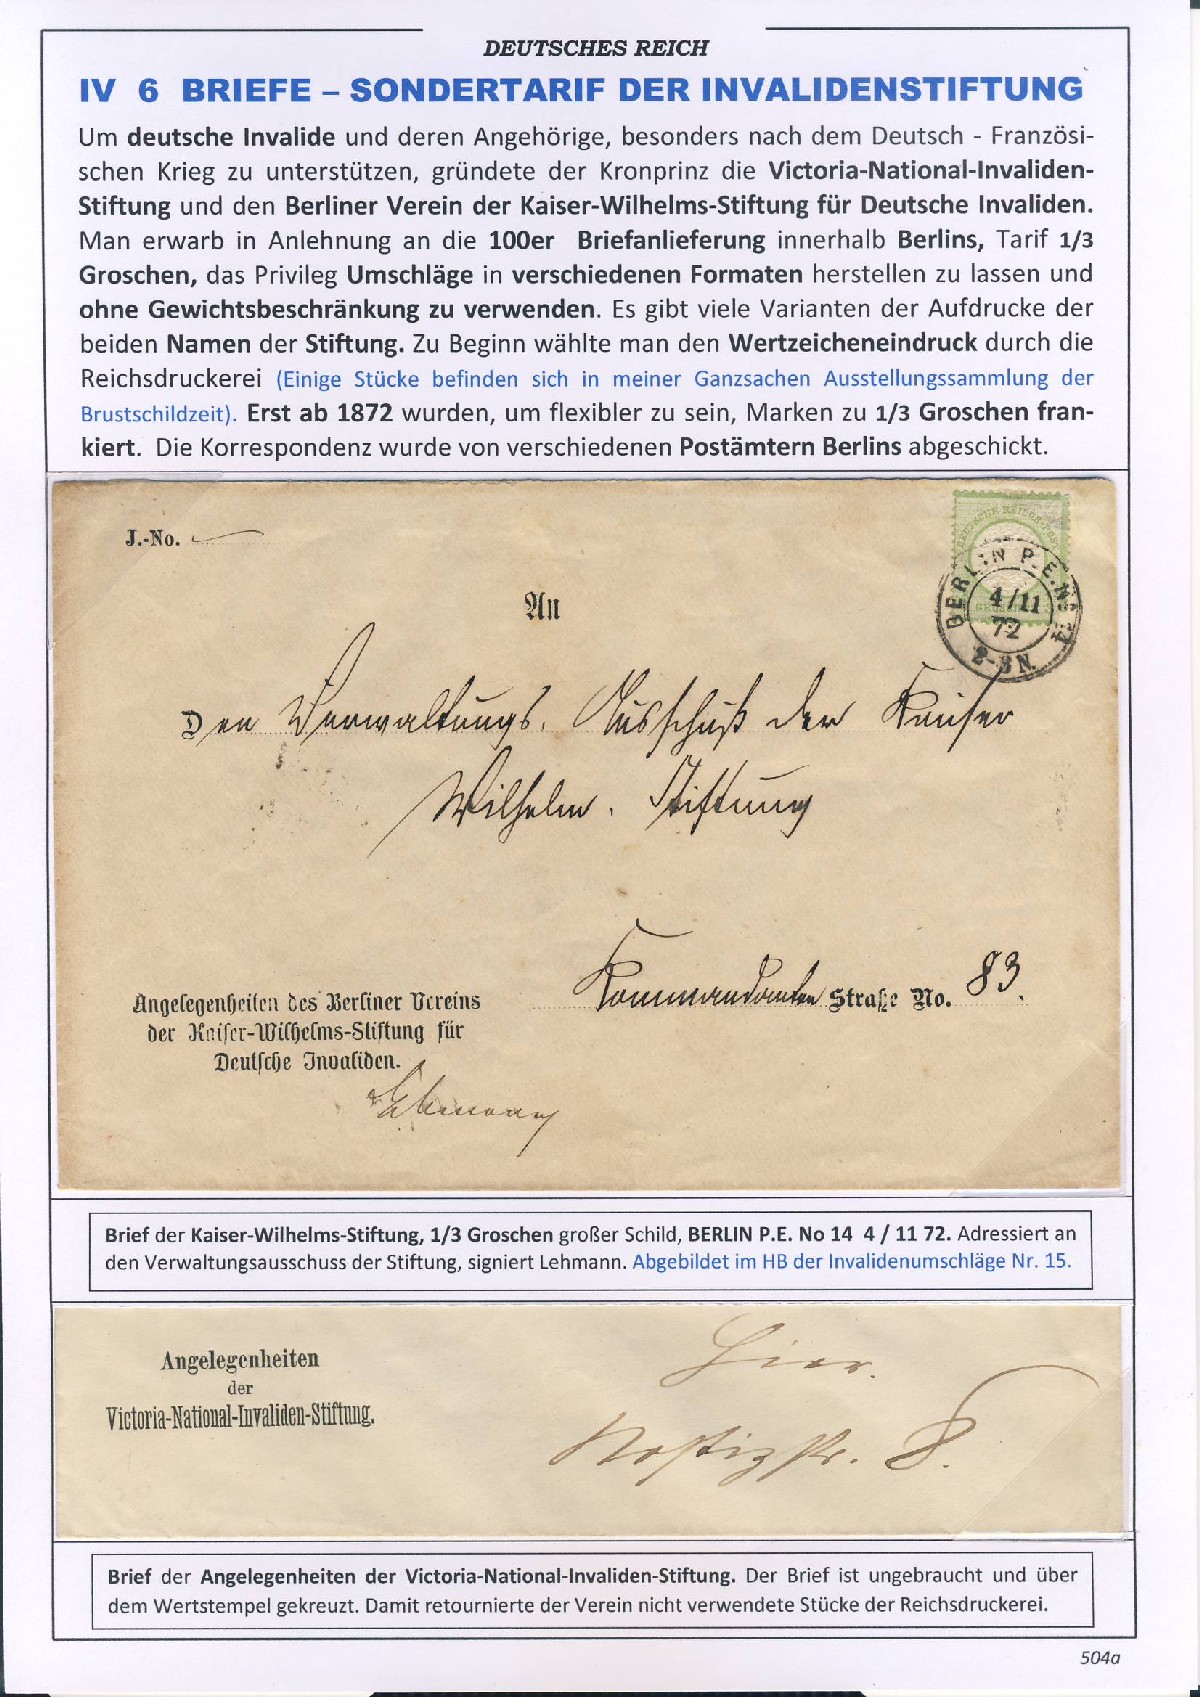 DEUTSCHES REICH
IV 6 BRIEFE – SONDERTARIF DER INVALIDENSTIFTUNG
Um deutsche Invalide und deren Angehörige, besonders nach dem Deutsch - Französi-
schen Krieg zu unterstützen, gründete der Kronprinz die Victoria-National-Invaliden-
Stiftung und den Berliner Verein der Kaiser-Wilhelms-Stiftung für Deutsche Invaliden.
Man erwarb in Anlehnung an die 100er Briefanlieferung innerhalb Berlins, Tarif 1/3
Groschen, das Privileg Umschläge in verschiedenen Formaten herstellen zu lassen und
ohne Gewichtsbeschränkung zu verwenden. Es gibt viele Varianten der Aufdrucke der
beiden Namen der Stiftung. Zu Beginn wählte man den Wertzeicheneindruck durch die
Reichsdruckerei (Einige Stücke befinden sich in meiner Ganzsachen Ausstellungssammlung der
Brustschildzeit). Erst ab 1872 wurden, um flexibler zu sein, Marken zu 1/3 Groschen fran-
kiert. Die Korrespondenz wurde von verschiedenen Postämtern Berlins abgeschickt.
J.-No.
DEUTSCHE REICHS-POST
BERLIN P.E. No 14
4/11
72
2-3 N.
An
Den Verwaltungs-Ausschuß der Kaiser
Wilhelm-Stiftung
Kommandanten Straße No. 83.
Angelegenheiten des Berliner Vereins
der Kaiser-Wilhelms-Stiftung für
Deutsche Invaliden.
Lehmann
Brief der Kaiser-Wilhelms-Stiftung, 1/3 Groschen großer Schild, BERLIN P.E. No 14 4 / 11 72. Adressiert an
den Verwaltungsausschuss der Stiftung, signiert Lehmann. Abgebildet im HB der Invalidenumschläge Nr. 15.
Angelegenheiten
der
Victoria-National-Invaliden-Stiftung.
Hier.
Nostizstr. 8.
Brief der Angelegenheiten der Victoria-National-Invaliden-Stiftung. Der Brief ist ungebraucht und über
dem Wertstempel gekreuzt. Damit retournierte der Verein nicht verwendete Stücke der Reichsdruckerei.
504a